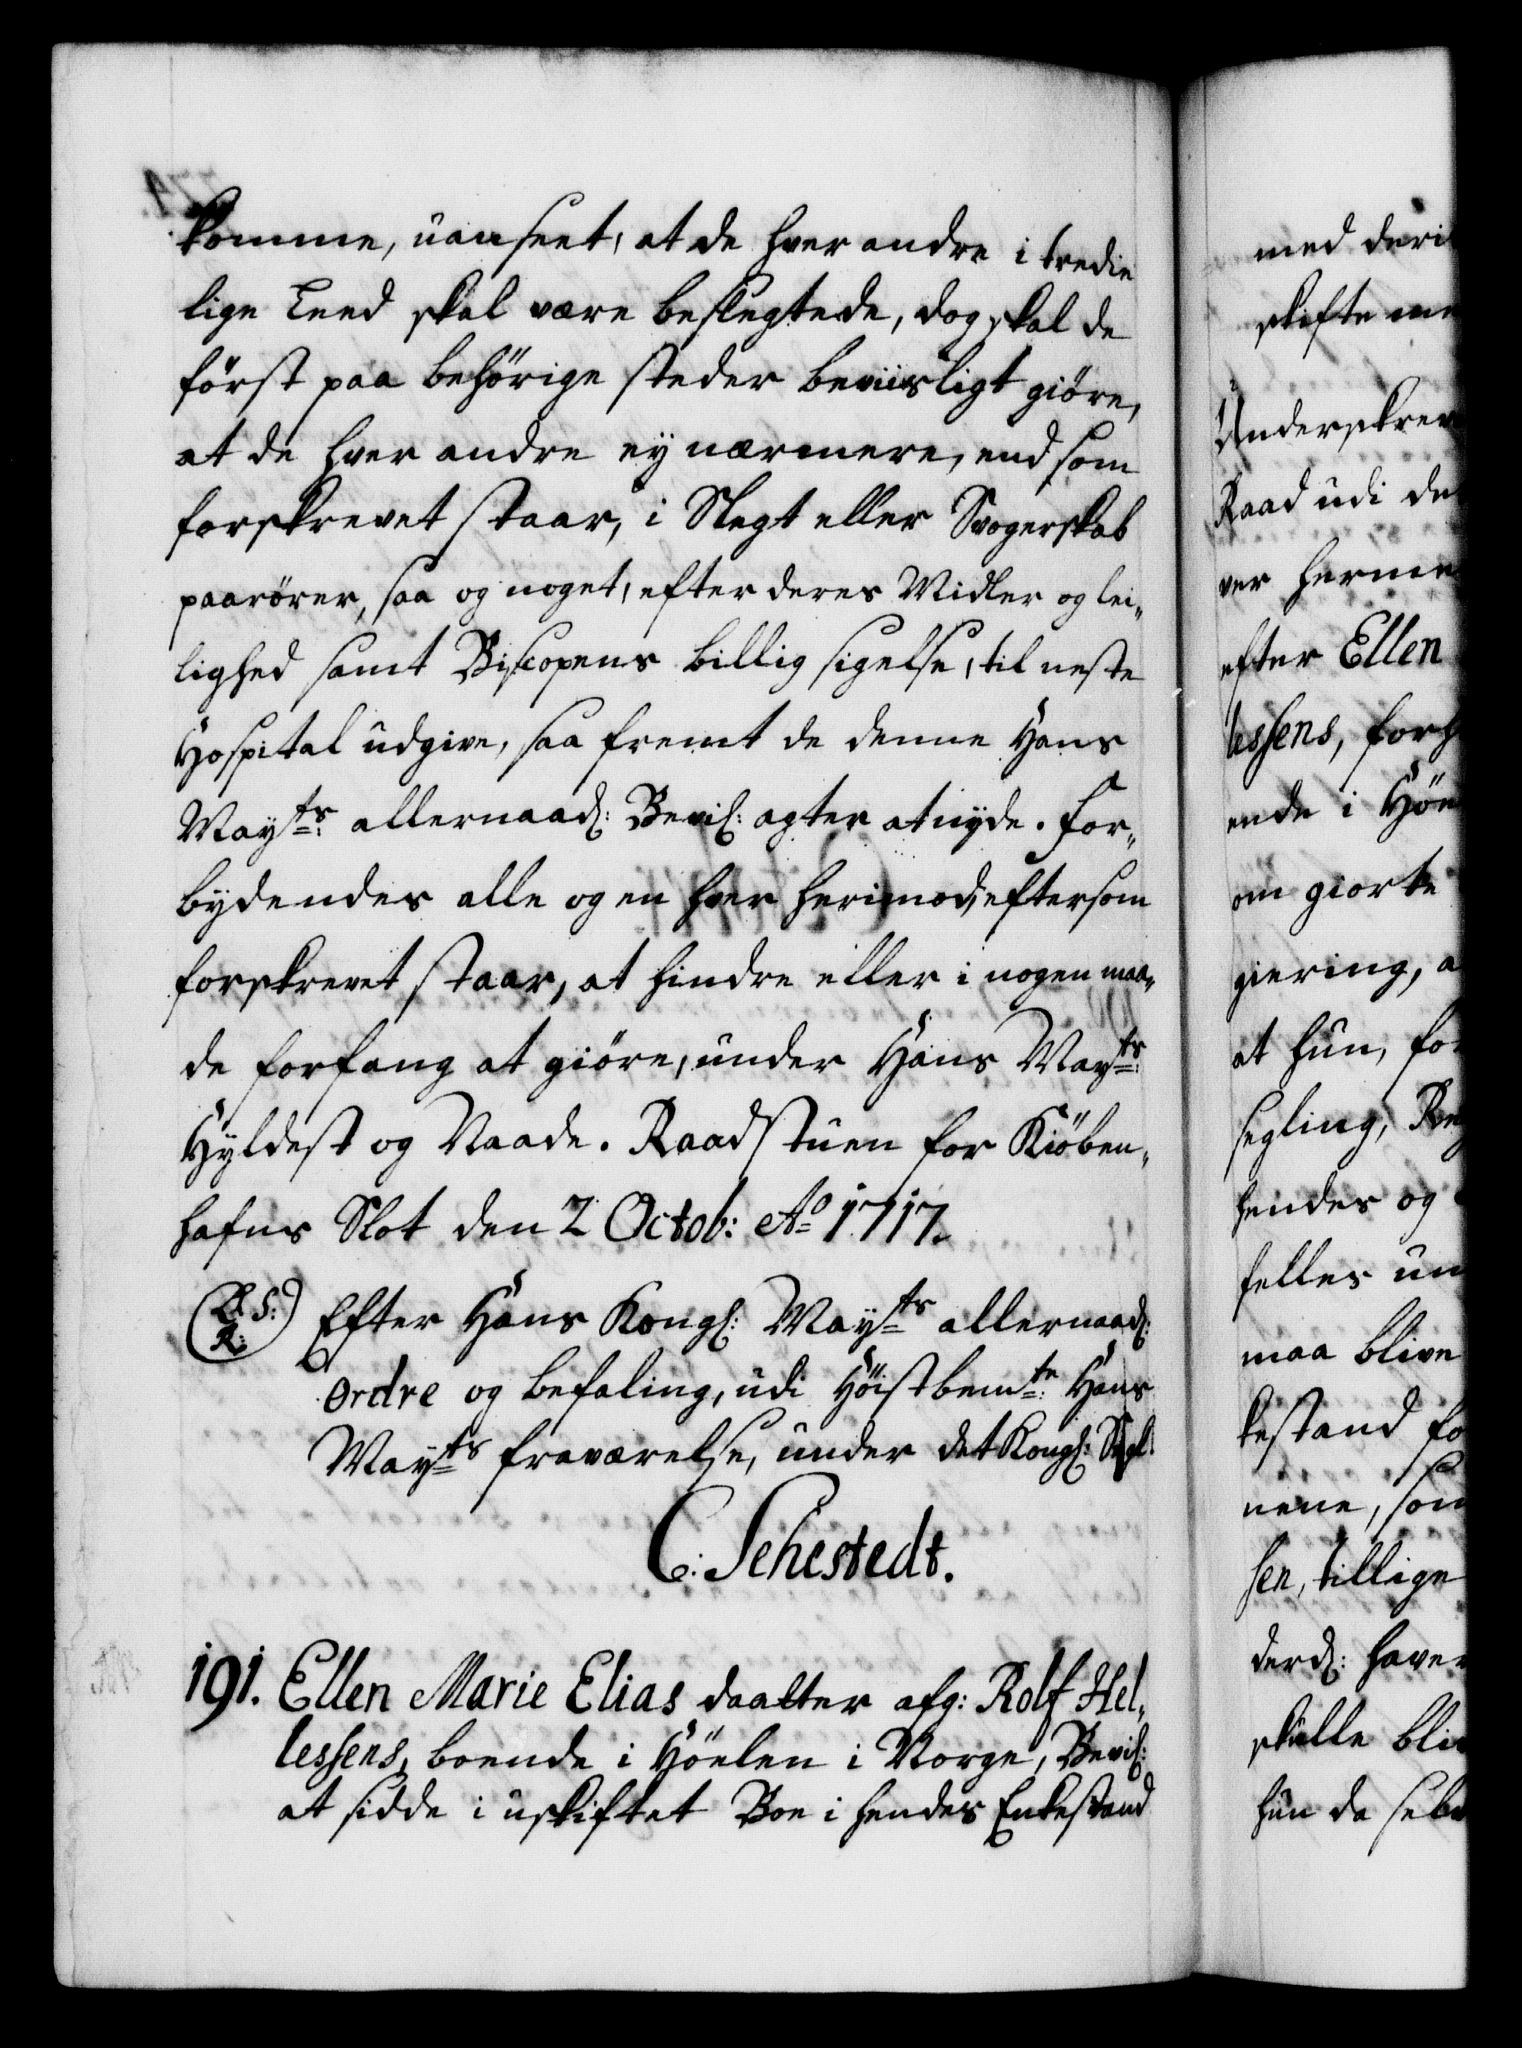 komme, uanseet, at de hver andre i tredie
lige Leed skal være beslegtede, dog skal de
först paa behörige steder beviisligt giöre,
at de hver andre ey nærmere, end som
forskrevet staar, i Slegt eller Svogerskab
paarörer, saa og noget, efter deres Midler og lei„
lighed samt Biscopens billig sigelse, til neste
Hospital udgive, saa fremt de denne Hans
May^ts: allernaad: Bevil: agter at nyde. For„
bydendes alle og en hver herimod, eftersom
forskrevet staar, at hindre eller i nogen maa„
de forfang at giöre, under Hans May^ts:
Hyldest og Naade. Raadstuen for Kiöben„
hafns Slot den 2 Octob: A^o 1717.
(L. S: R:) Efter Hans Kongl: May^ts allernaad:
Ordre og befaling, udi Höistbem^te: Hans
May^ts fraværelse, under det Kongl: Segl.
C: Sehestedt.
191. Ellen Marie Elias daatter afg: Rolf Hel„
lessens, boende i Höelen i Norge, Bevil:
at sidde i uskiftet Boe i hendes Enkestand
med deri
skifte me
Underskrev
Raad udi de
ver herme
efter Ellen
lessens, forh
ende i Höe
om giorte
giering, a
at hun, for
segling, Reg
hendes og
felles un
maa blive
kestand fo
nene, som
sen, tillige
derd: haver
skulle bliv
hun da selv